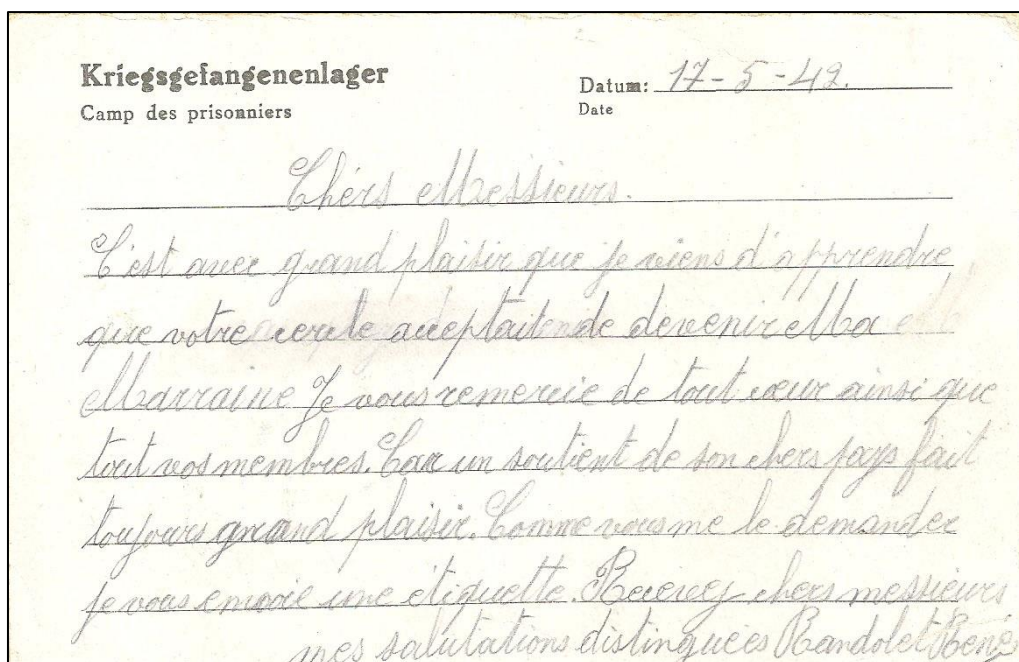 Kriegsgefangenenlager
Camp des prisonniers
Datum: 17-5-42.
Date
Chérs Messieurs.
C'est avec grand plaisir que je viens d'apprendre
que votre cercle acceptait de devenir Ma
Marraine Je vous remercie de tout cœur ainsi que
tout vos membres. Car un soutient de son chers pays fait
toujours grand plaisir. Comme vous me le demander
je vous envoie une étiquette. Recevez chers messieurs
mes salutations distinguées Randolet René